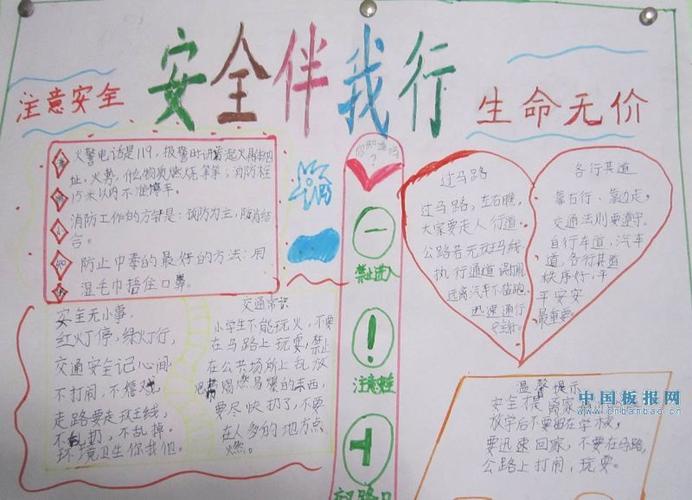 安全伴我行
注意安全
生命无价
火警电话是119,报警时讲着起火具体地
址,火势,什么物质燃烧等等;消防栓
15米以内不准停车。
消防工作的方针是:预防为主,防消结
合。
防止中毒的最好的方法:用
湿毛巾捂住口鼻。
安全无小事
红灯停,绿灯行,
交通安全记心间
不打闹,不嬉戏
走路要走斑马线
不乱扔,不乱掉
环境卫生你我他。
交通常识
小学生不能玩火,不要
在马路上玩耍,禁止
在公共场所上乱放
易燃易爆的东西,
要尽快扔了,不要
在人多的地方点
燃。
你知道吗
?
禁止进入
过马路
过马路,左右瞧,
大家要走人行道,
公路若无斑马线
执行通道
远离汽车不追跑,
迅速通行
各行其道
靠右行、靠边走,
交通法则要遵守。
自行车道,汽车
道,各行其道
秩序好,平
平安安
最重要
温馨提示
放学后不要留在学校,
要迅速回家,不要在马路,
公路上打闹,玩耍。
中国板报网
www.cnbanbao.cn